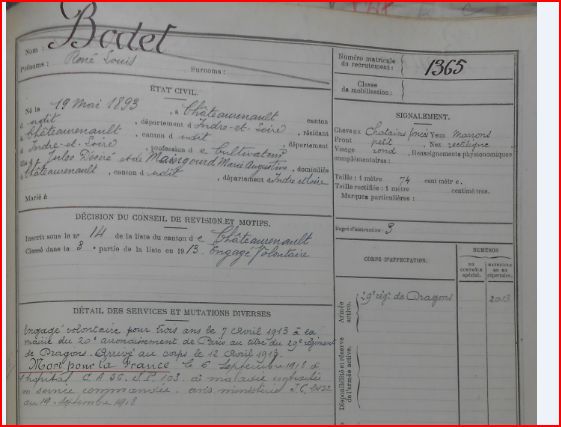 Bodet
Nom :
Prénoms : René Louis Surnoms :
Numéro matricule
du recrutement :
1365
Classe
de mobilisation :
ÉTAT CIVIL.
Né le 19 Mai 1893, à Châteaurenault canton
d udit, département d Indre-et-Loire, résidant
Châteaurenault, canton d udit, département
d Indre-et-Loire, profession d e Cultivateur
fils d et de Marie Augustine, domiciliés
Châteaurenault, canton d udit, département Indre et Loire
Marié à
SIGNALEMENT.
Cheveux Chatains foncé Yeux marrons
Front petit Nez rectiligne
Visage rond Renseignements physionomiques
complémentaires :
Taille : 1 mètre 74 centimètres.
Taille rectifiée : 1 mètre centimètres.
Marques particulières :
Degré d'instruction : 3
DÉCISION DU CONSEIL DE REVISION ET MOTIFS.
Inscrit sous le n° 14 de la liste du canton d e Châteaurenault
Classé dans la 3 e partie de la liste en 1913. Engagé Volontaire
CORPS D'AFFECTATION.
NUMÉROS
au
contrôle
spécial.
matricule
au
répertoire.
Armée
active.
29e rég. de Dragons
Disponibilité et réserve
de l'armée active.
DÉTAIL DES SERVICES ET MUTATIONS DIVERSES
Engagé volontaire pour trois ans le 7 Avril 1913 à la
mairie du 20e arrondissement de Paris au titre du 29e régiment
de Dragons. Arrivé au corps le 12 Avril
Mort pour la France le 6 Septembre 1918 à
l'hôpital C. A. 36. S.P. 103. à maladie contractée
en service commandé. avis ministériel
du 19 Septembre 1918